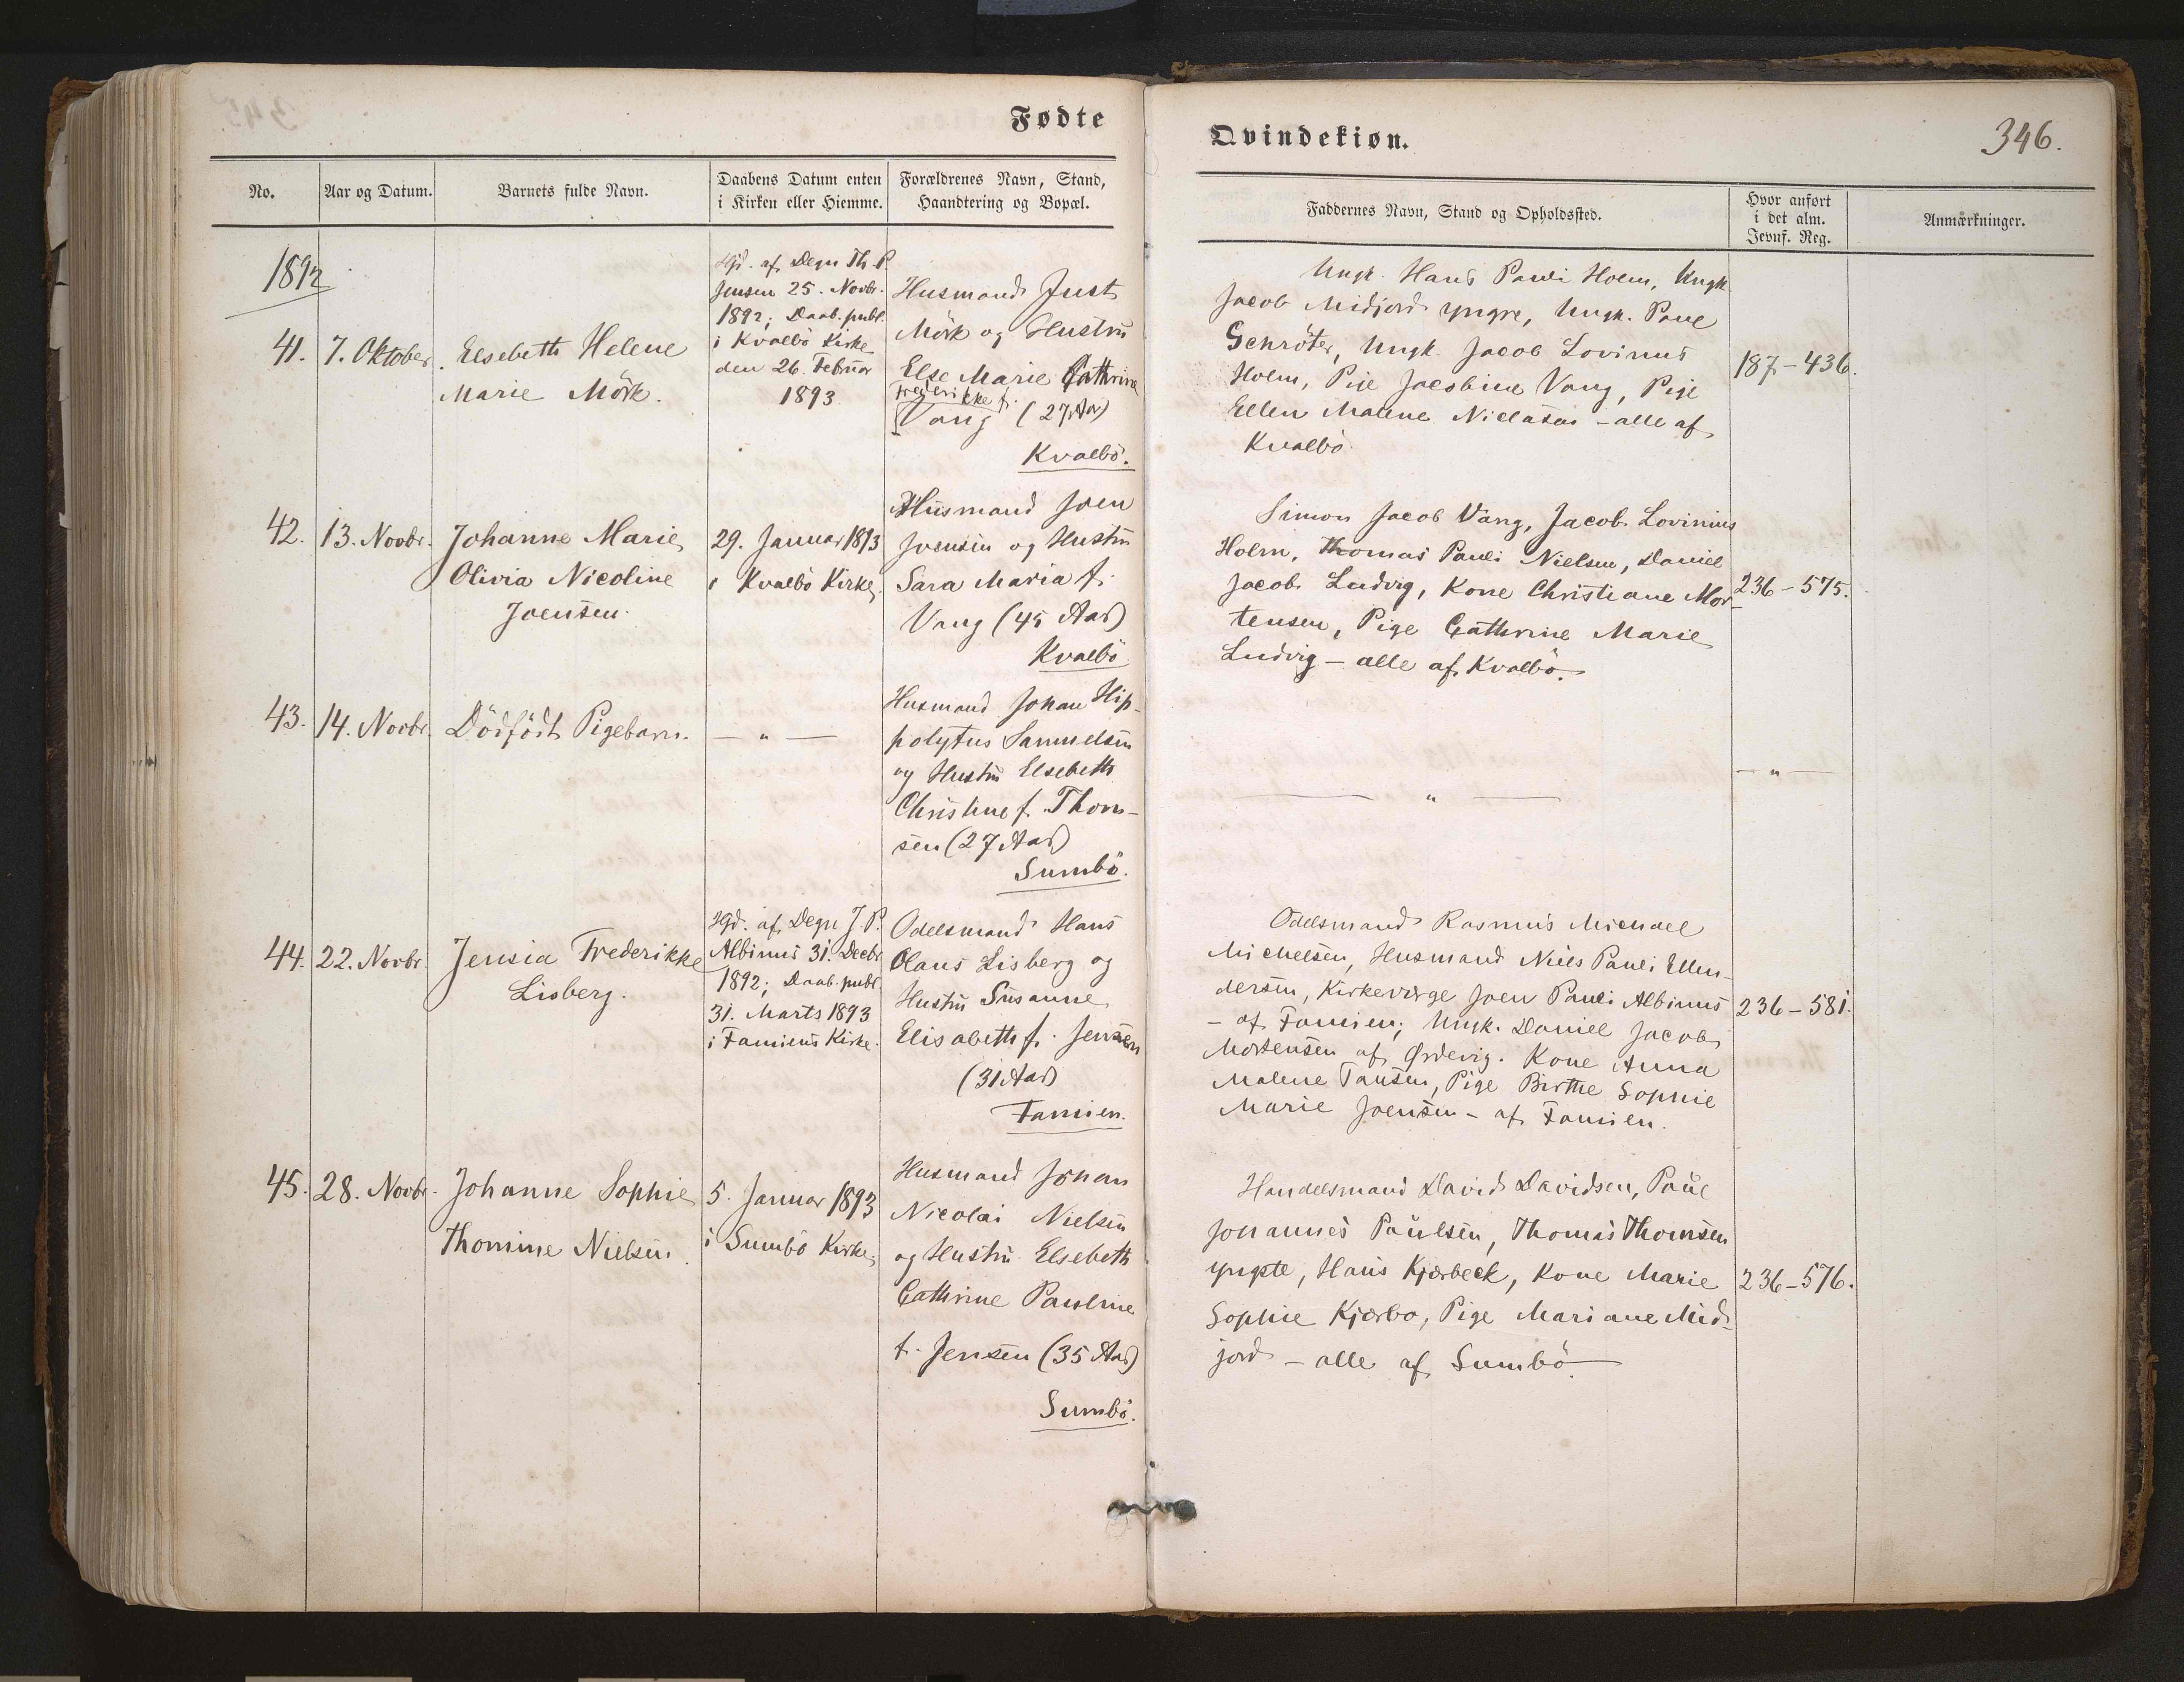 Fødte
No.
Aar og Datum.
Barnets fulde Navn.
Daabens Datum enten
i Kirken eller Hiemme.
Forældrenes Navn, Stand,
Haandtering og Bopæl.
1892
41.
7. Oktober.
Elsebeth Helene
Marie Mörk.
Hjd. af Degn Th. P.
Jensen 25. Novbr.
1892; Daab. publ.
i Kvalbö Kirke
den 26. Februar
1893
Husmand Just
Mörk og Hustru
Else Marie Cathrine
Frederikke f.
Vang (27 Aar)
Kvalbö.
42.
13. Novbr.
Johanne Marie
Olivia Nicoline
Joensen.
29. Januar 1893
i Kvalbö Kirke.
Husmand Joen
Joensen og Hustru
Sara Maria f.
Vang (45 Aar)
Kvalbö
43.
14. Novbr.
Dödfödt Pigebarn.
— " —
Husmand Johan Hip-
polytus Samuelsen
og Hustru Elsebeth
Christine f. Thom-
sen (27 Aar)
Sumbö.
44.
22. Novbr.
Jensia Frederikke
Lisberg.
Hjd. af Degn J. P.
Albinus 31. Decbr
1892; Daab. publ.
31. Marts 1893
i Famiens Kirke.
Odelsmand Hans
Olaus Lisberg og
Hustru Susanne
Elisabeth f. Jensen
(31 Aar)
Famien.
45.
28. Novbr.
Johanne Sophie
Thomine Nielsen.
5. Januar 1893
i Sumbö Kirke.
Husmand Johan
Nicolai Nielsen
og Hustru Elsebeth
Cathrine Pauline
f. Jensen (35 Aar)
Sumbö.
Qvindekiøn.
346.
Faddernes Navn, Stand og Opholdssted.
Hvor anført
i det alm.
Jevnf. Reg.
Anmærkninger.
Ungk. Hans Pauli Holm, Ungk.
Jacob Midjord yngre, Ungk. Poul
Schröter, Ungk. Jacob Lovinus
Holm, Pige Jacobine Vang, Pige
Ellen Malene Niclasen – alle af
Kvalbö.
187–436.
Simon Jacob Vang, Jacob Lovinius
Holm, Thomas Pauli Nielsen, Daniel
Jacob Ludvig, Kone Christiane Mor-
tensen, Pige Cathrine Marie
Ludvig – alle af Kvalbö.
236–575.
— " —
— " —
Odelsmand Rasmus Michael
Michelsen, Husmand Niels Pauli Ellen-
dersen, Kirkeværge Joen Pauli Albinus
– af Famien; Ungk. Daniel Jacob
Mortensen af Ørdevig. Kone Anna
Malene Tausen, Pige Birthe Sophie
Marie Joensen – af Famien.
236–581.
Handelsmand David Davidsen, Paul
Johannes Paulsen, Thomas Thomsen
yngste, Hans Kjærbeck, Kone Marie
Sophie Kjærbo, Pige Mariane Mid-
jord – alle af Sumbö.
236–576.